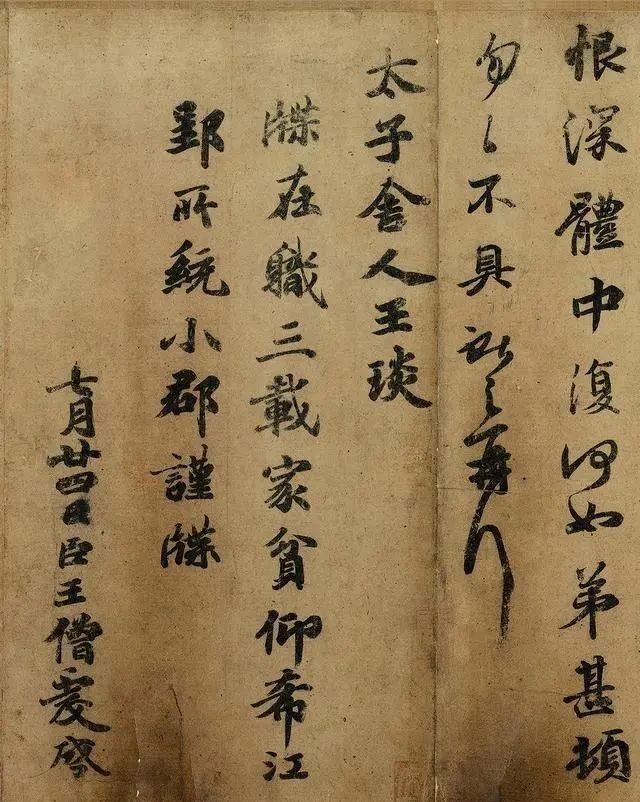 恨深體中復何如弟甚頓
匆〻不具獻之再拜
太子舍人王琰
牒在職三載家貧仰希江
郢所統小郡謹牒
七月廿四日臣王僧虔啓